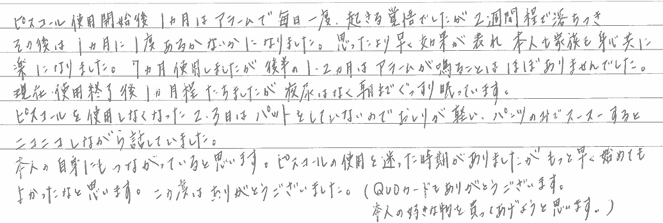 ピスコール使用開始後1ヵ月はアラームで毎日一度、起きる覚悟でしたが2週間程で落ちつき
その後は1ヵ月に1度あるかないかになりました。思ったより早く効果が表れ本人も家族も身心共に
楽になりました。7ヵ月使用しましたが後半の1・2ヵ月はアラームが鳴ることはほぼありませんでした。
現在使用終了後1ヵ月程たちましたが夜尿はなく朝までぐっすり眠っています。
ピスコールを使用しなくなった2、3日はパットをしていないのでおしりが軽い、パンツのみでスースーすると
ニコニコしながら話していました。
本人の自身にもつながっていると思います。ピスコールの使用を迷った時期がありましたがもっと早く始めても
よかったなと思います。この度はありがとうございました。(QUOカードもありがとうございます。
本人の好きな物を買ってあげようと思います。)